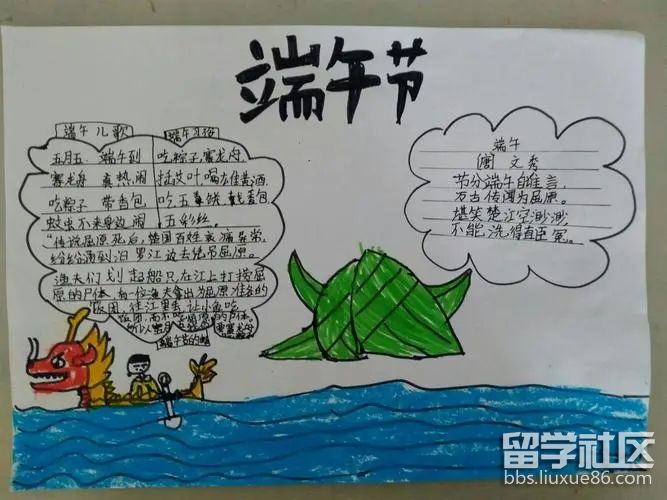 端午节
端午儿歌
端午习俗
五月五，端午到
赛龙舟，真热闹
吃粽子，带香包
蚊虫不来身边闹
吃粽子，赛龙舟，
挂艾叶，喝雄黄酒，
吃五
戴香包，
五彩丝。
"传说屈原死后，楚国百姓哀痛异常，
纷纷涌到汨罗江边去凭吊屈原。
渔夫们划起船只，在江上打捞屈
原的尸体，有一位渔夫拿出为屈原准备的
饭团，往江里丢，让小鱼吃
端午
唐 文秀
节分端午自谁言，
万古传闻为屈原。
堪笑楚江空渺渺，
不能洗得直臣冤。
留学社区
bbs.liuxue86.com